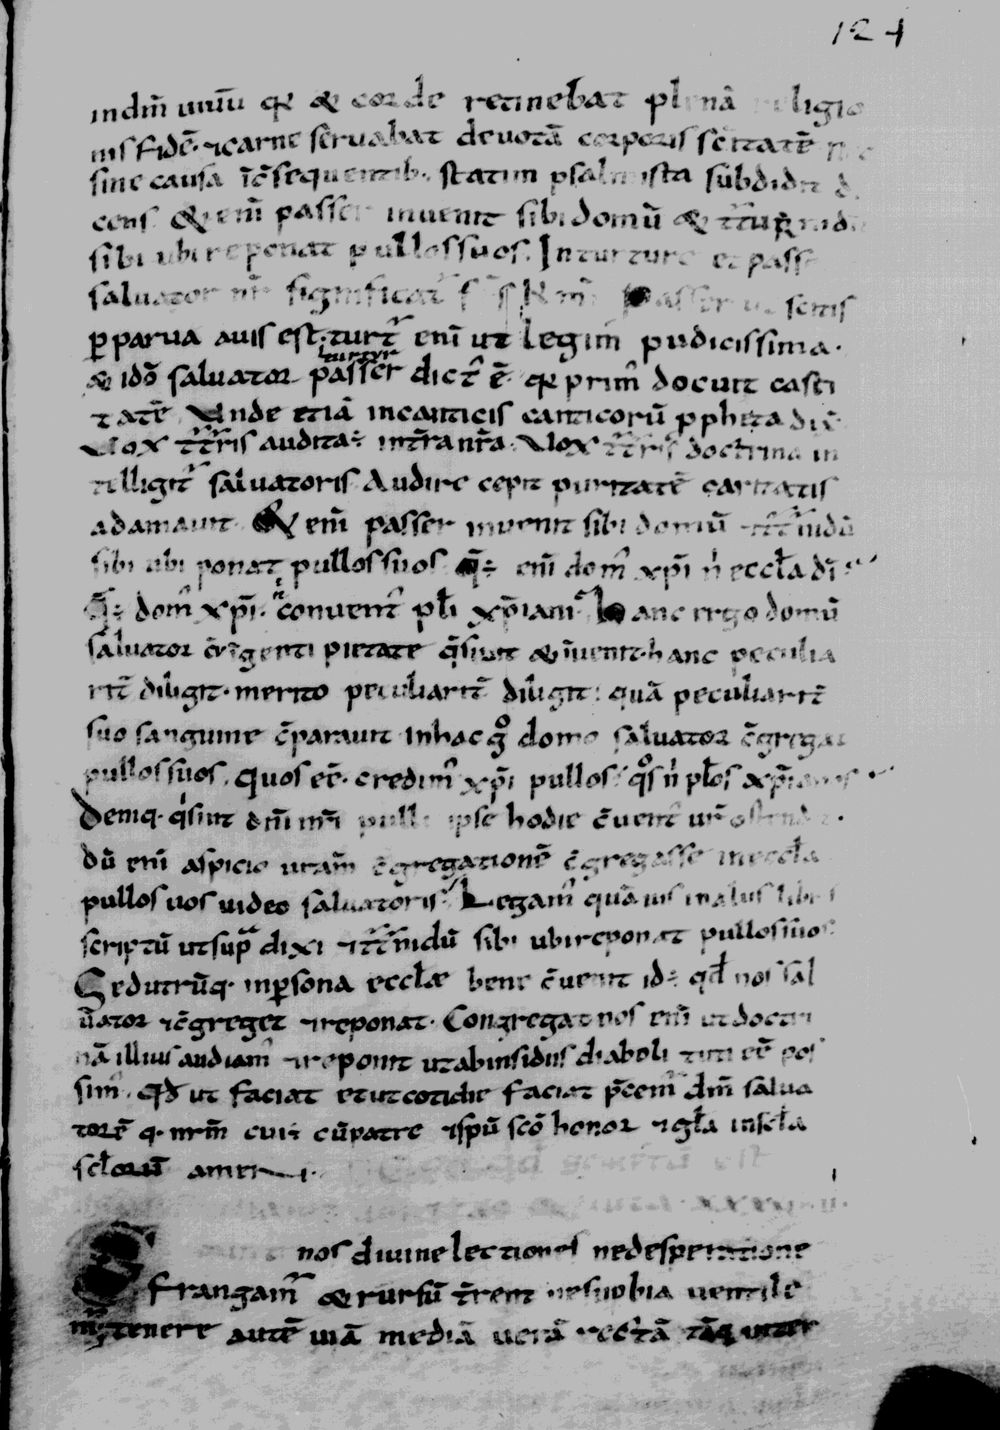 124
indm̄ uiuū qƺ & corde retinebat plenā religio
nis fidē · ⁊carne seruabat deuotā corporis sc̄itatē
sine causa īc̄sequentib· statim psalmista subdidit
cens · & enī passer inuenit sibi domū & t̄t̄ur nidū
sibi ubi reponat pullos suos. In turture et passe
saluator nr̄ significat᷑ Passer ut scitis
ꝑparua auis est · turt᷑ enī ut legim᷑ pudicissima ·
turtyr
& idō saluator passer dict᷑ ē · qƺ prim᷑ docuit casti
tatē Unde etiā incanticis canticorū ꝓpheta dix̄
Uox t̄t̄ris audita÷ int̄ranr̄a · Uox t̄t̄ris doctrina in
telligit᷑ saluatoris Audire cepit puritatē caritatis
adamauit · & enī passer inuenit sibi domū ⁊t̄t̄ nidū
sibi ubi ponat pullos suos · q̄÷ enī dom᷑ xp̄i n̄ eccl̄a dī
q̄÷ dom᷑ xp̄i · n̄ conuent᷑ pl̄i xp̄iani Hanc ergo domū
saluator īgenti pietate q̄siuit & īuenit · hanc peculia
rit̄ diligit · merito peculiarit̄ diligit · quā peculiarit̄
suo sanguine c̄parauit · inhac gͦ domo saluator c̄gregat
pullos suos · quos eē · credim᷑ xp̄i pullos · qͦs n̄ pl̄os xp̄ianos
Deniq· q̍sint dn̄i nr̄i pulli ipse hodie c̄uent᷑ ur̄ ostendit ·
dū enī aspicio uram̄ c̄gregationē c̄gregasse ineccl̄a
pullos uos uideo saluatoris · Legam᷑ quāuis inaliis libris
scriptū utsup̄ dixi ⁊t̄t̄ nidū sibi ubireponat pullossuos
Sedutrūq· inꝑsona eccl̄ae bene c̄uenit id÷ qd̄ nos sal
uator ⁊c̄greget ⁊reponat · Congregat nos enī ut doctri
nā illius audiam᷑ ⁊reponit utabinsidiis diaboli tuti eē pos
sim᷑ · Qd̄ ut faciat etutcotidie faciat p̄cem᷑ dn̄m salua
torē q· nr̄m cui÷ cūpatre ⁊spū scō honor ⁊gl̄a inscl̄a
scl̄orum amen ·
nos diuine lectiones nedesperatione
frangam᷑ & rursū t̄rent nesuꝑbia uentile
m᷑; tenere autē uiā mediā uerā ⁊rectā